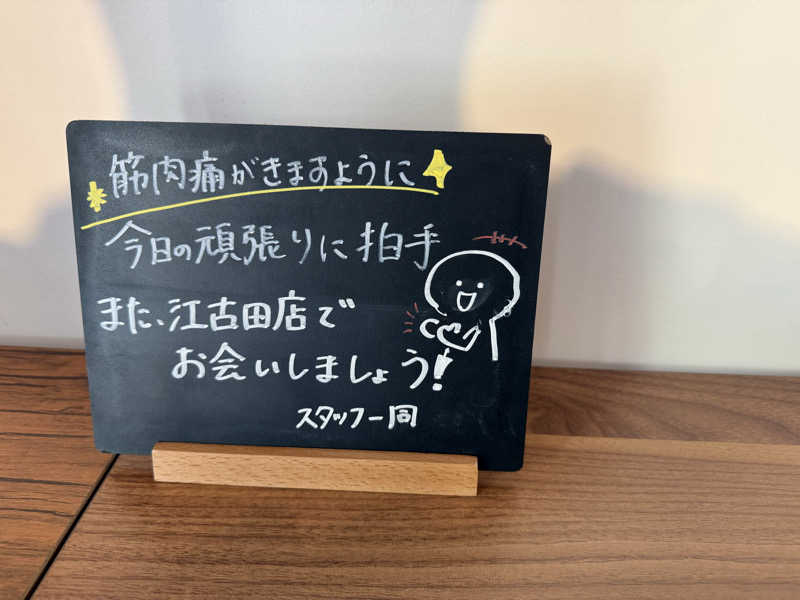 筋肉痛がきますように
今日の頑張りに拍手
また、江古田店で
お会いしましょう!
スタッフ一同